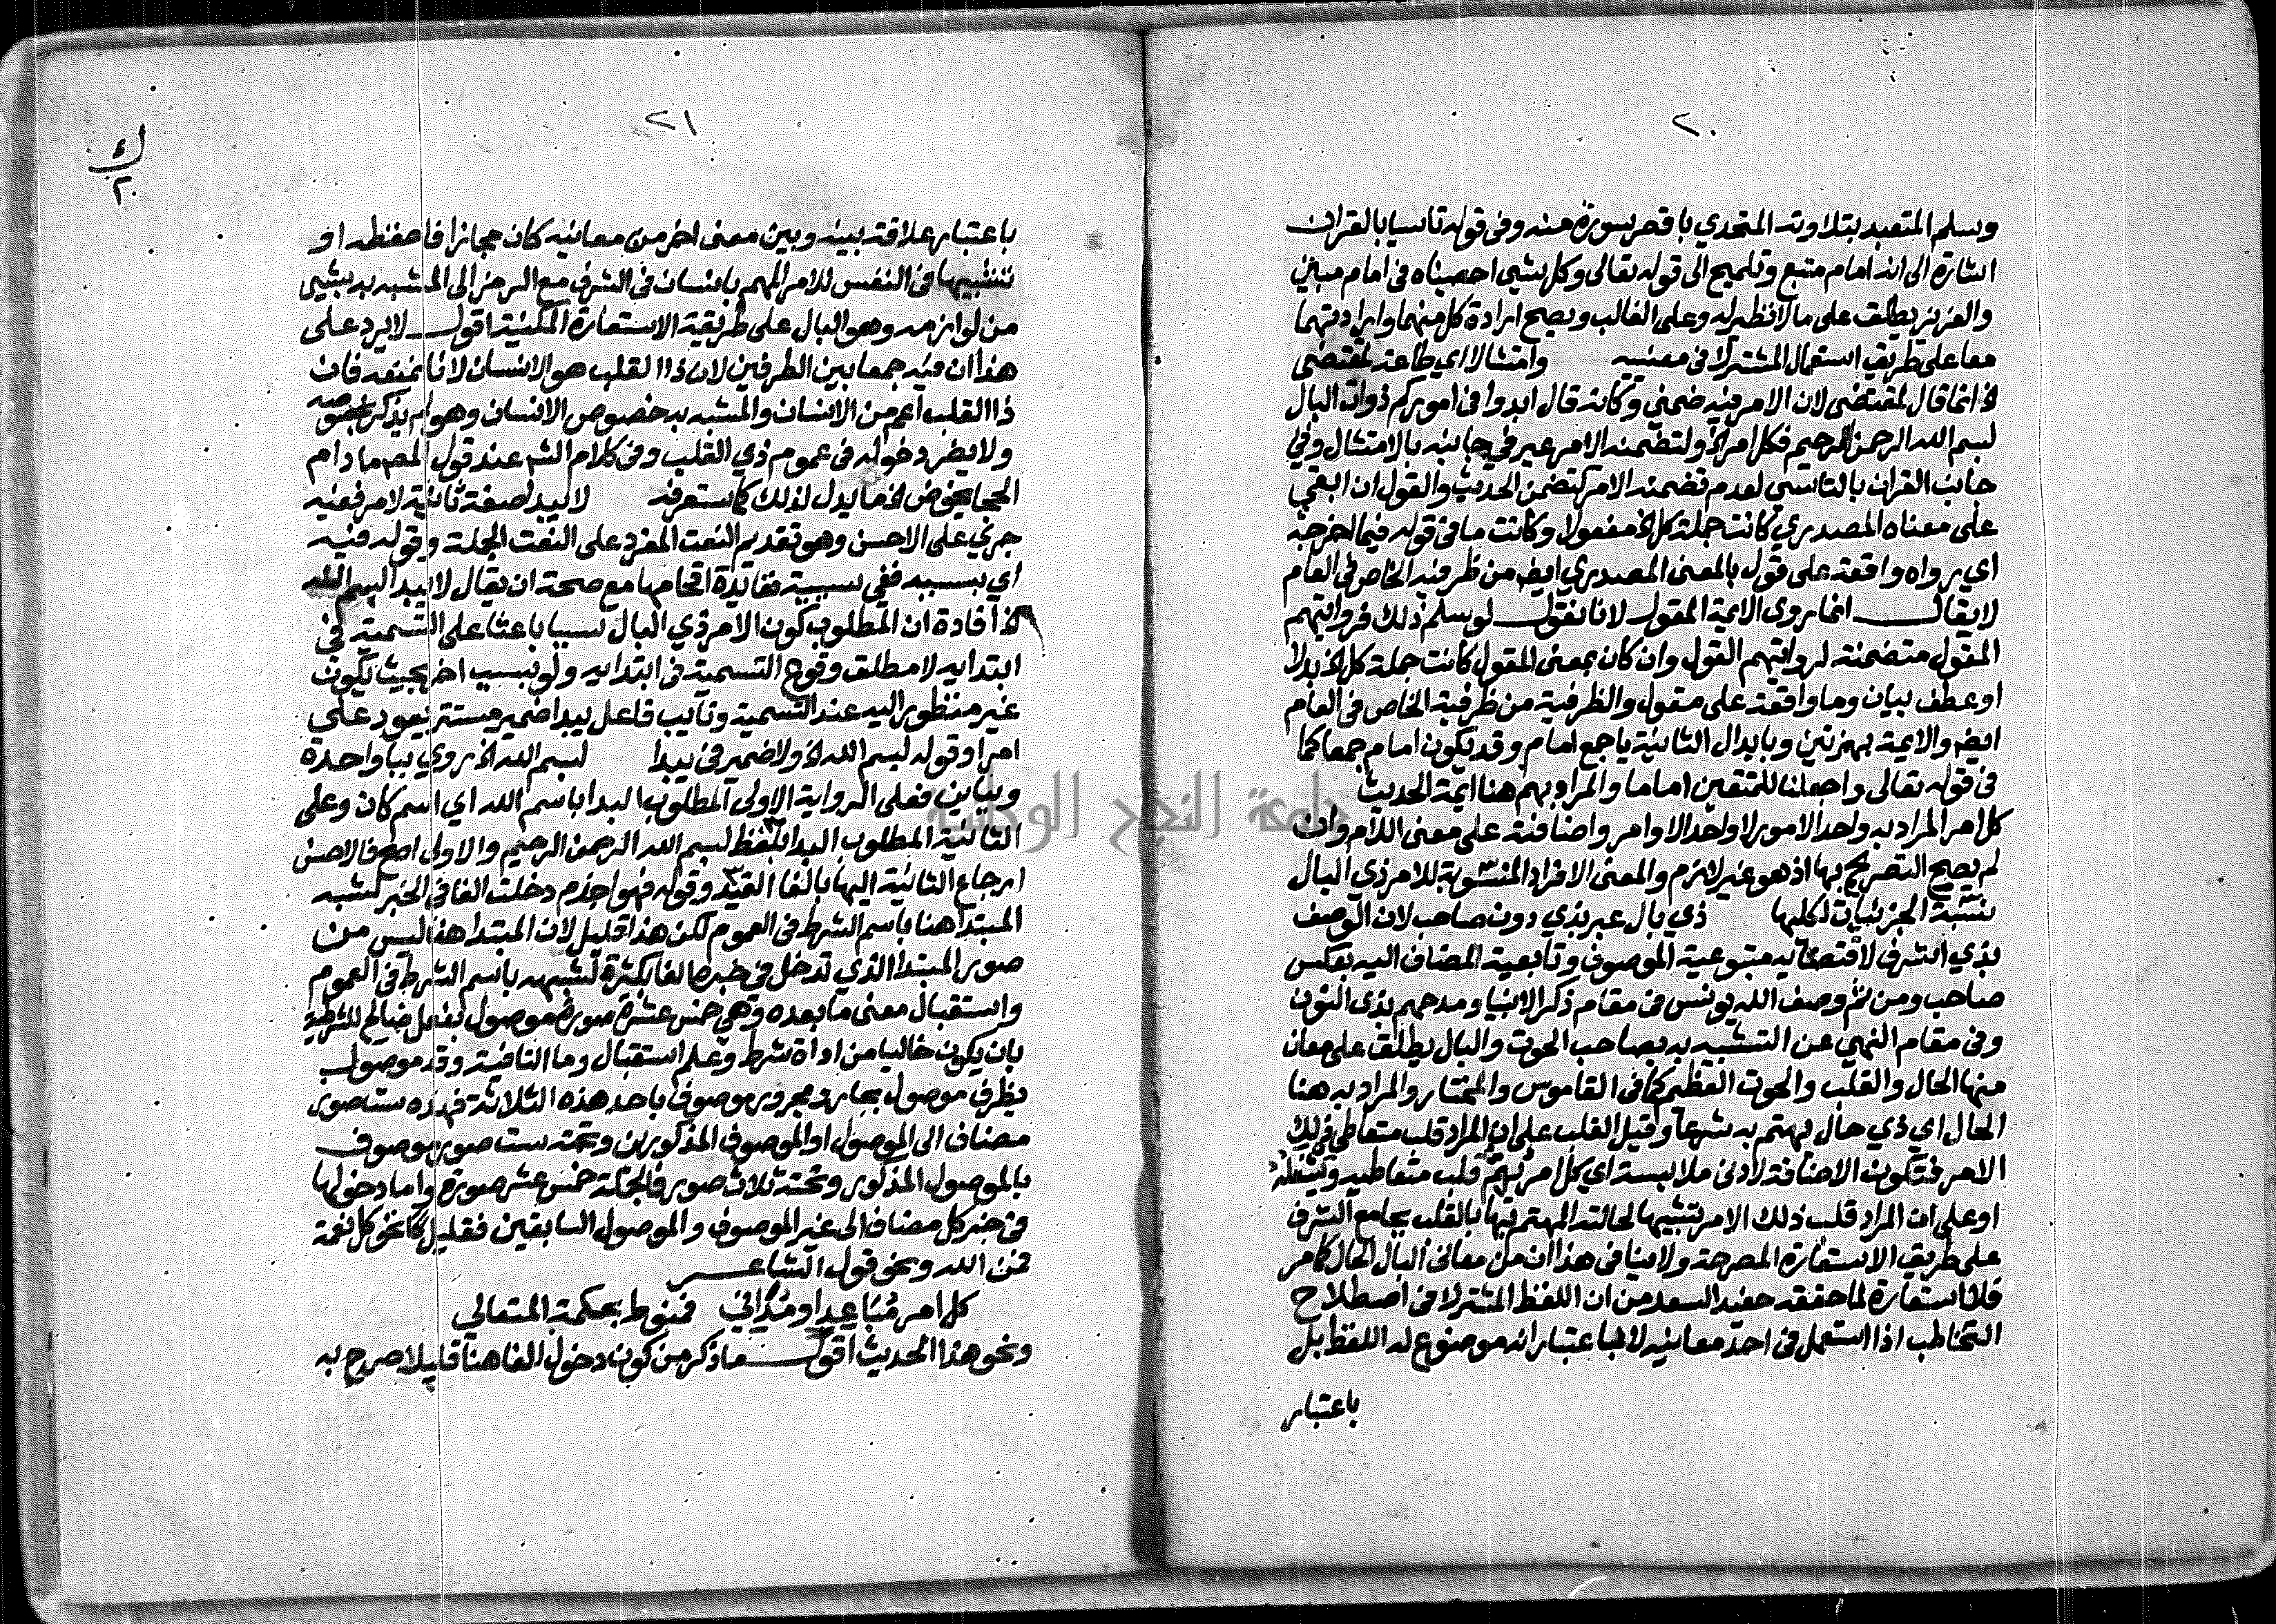 ٢٠
وسلم المتعبد بتلاوته المتحدي باقصر سورة منه وفى قوله تاسيا بالقران
اشارة الى انه امام متبع وتلميح الى قوله تعالى وكل شيى احصيناه فى امام مبين
والعزيز يطلق على ما لا نظير له وعلى الغالب ويصح ارادة كل منهما وارادتهما
معا على طريق استعمال المشترك فى معنييه وامتثالا اي طاعة لمقتضى
انما قال لمقتضى لان الامر فيه ضمنى وكانه قال ابدوا فى اموركم ذوات البال
ببسم الله الرحمن الرحيم فكل امر الخ ولتضمنه الامر عبر في جانبه بالامتثال وفي
جانب القران بالتاسي لعدم تضمنه الامر كتضمن الحديث والقول ان ابقي
على معناه المصدري كانت جملة كل الخ مفعولا وكانت ما فى قوله فيما اخرجه
اي رواه واقعة على قول بالمعنى المصدري ايضا من ظرفية الخاص فى العام
لا يقال انما روى الايمة المقول لانا نقول لو سلم ذلك فروايتهم
المقول متضمنة لروايتهم القول وان كان بمعنى المقول كانت جملة كل الخ بدلا
او عطف بيان وما واقعة على مقول والظرفية من ظرفية الخاص فى العام
ايضا والايمة بهمزتين وبابدال الثانية يا جمع امام وقد يكون امام جمعا كما
فى قوله تعالى واجعلنا للمتقين اماما والمراد بهم هنا ايمة الحديث
كل امر المراد به واحد الامور لا واحد الاوامر واضافته على معنى اللام وان
لم يصح التصريح بها اذ هو غير لازم والمعنى الافراد المنسوبة للامر ذي البال
نسبة الجزئيات لكليها ذي بال عبر بذي دون صاحب لان الوصف
بذي اشرف لاقتضايه متبوعية الموصوف وتابعية المضاف اليه بعكس
صاحب ومن ثم وصف الله يونس فى مقام ذكر الانبيا ومدحهم بذى النون
وفى مقام النهي عن التشبه به بصاحب الحوت والبال يطلق على معان
منها الحال والقلب والحوت العظيم كما فى القاموس والمختار والمراد به هنا
الحال اي ذي حال يهتم به شرعا وقيل القلب على ان المراد قلب متعاطي ذلك
الامر فتكون الاضافة لادنى ملابسة اي كل امر يهم قلب متعاطيه ويشغله
او على ان المراد قلب ذلك الامر تشبيها لحالته المهتم بها بالقلب بجامع الشرف
على طريق الاستعارة المصرحة ولا ينافى هذا ان من معانى البال الحال كما مر
فلا استعارة لما حققه حفيد السعد من ان اللفظ المشترك فى اصطلاح
التخاطب اذا استعمل فى احد معانيه لا باعتبار انه موضوع له اللفظ بل
باعتبار
٢١
ك
٢٠
باعتبار علاقة بينه وبين معنى اخر من معانيه كان مجازا فاحفظه او
تشبيها فى النفس للامر المهم بانسان فى الشرف مع الرمز الى المشبه به بشيى
من لوازمه وهو البال على طريقة الاستعارة المكنية اقول لا يرد على
هذا ان فيه جمعا بين الطرفين لان ذا القلب هو الانسان لانا نمنعه فان
ذا القلب اعم من الانسان والمشبه به خصوص الانسان وهو لم يذكر بخصوصه
ولا يضر دخوله فى عموم ذي القلب وفى كلام الشم عند قول المصم ما دام
الحجا يخوض الخ ما يدل لذلك كما ستعرفه لا يبد لصفة ثانية لامر ففيه
جري على الاحسن وهو تقديم النعت المفرد على النعت الجملة وقوله فيه
اي بسببه ففي سببية ففايدة اقحامها مع صحة ان يقال لا يبدا ببسم الله
الخ افادة ان المطلوب كون الامر ذي البال سببا باعثا على التسمية فى
ابتدايه لا مطلق وقوع التسمية فى ابتدايه ولو بسبب اخر بحيث يكون
غير منظور اليه عند التسمية ونايب فاعل يبدا ضمير مستتر يعود على
امر او قوله ببسم الله الخ ولا ضمير فى يبدا ببسم الله الخ روي ببا واحدة
وببايين فعلى الرواية الاولى المطلوب البدا باسم الله اي اسم كان وعلى
الثانية المطلوب البدا بلفظ بسم الله الرحمن الرحيم والاولى اصح فالاحسن
ارجاع الثانية اليها بالغا القيد وقوله فهو اجذم دخلت الفا فى الخبر لشبه
المبتدا هنا باسم الشرط فى العموم لكن هذا قليل لان المبتدا هنا ليس من
صور المبتدا الذي تدخل فى خبره الفا بكثرة لشبهه باسم الشرط فى العموم
واستقبال معنى ما بعده وهى خمس عشرة صورة موصول بفعل صالح للشرطية
بان يكون خاليا من اداة شرط وعلم استقبال وما النافية وقد موصول
بظرف موصول بجار ومجرور موصوف باحد هذه الثلاثة فهذه ست صور
مضاف الى الموصول او الموصوف المذكورين وتحته ست صور موصوف
بالموصول المذكور وتحته ثلاث صور فالجملة خمس عشر صورة واما دخولها
فى خبر كل مضاف الى غير الموصوف والموصول السابقين فقليل كما نحو كل نعمة
فمن الله ونحو قول الشاعر
كل امر مباعد او مدانى فمنوط بحكمة المتعالي
ونحو هذا الحديث اقول ما ذكر من كون دخول الفا هنا قليلا صرح به
جامعة النجاح الوطنية